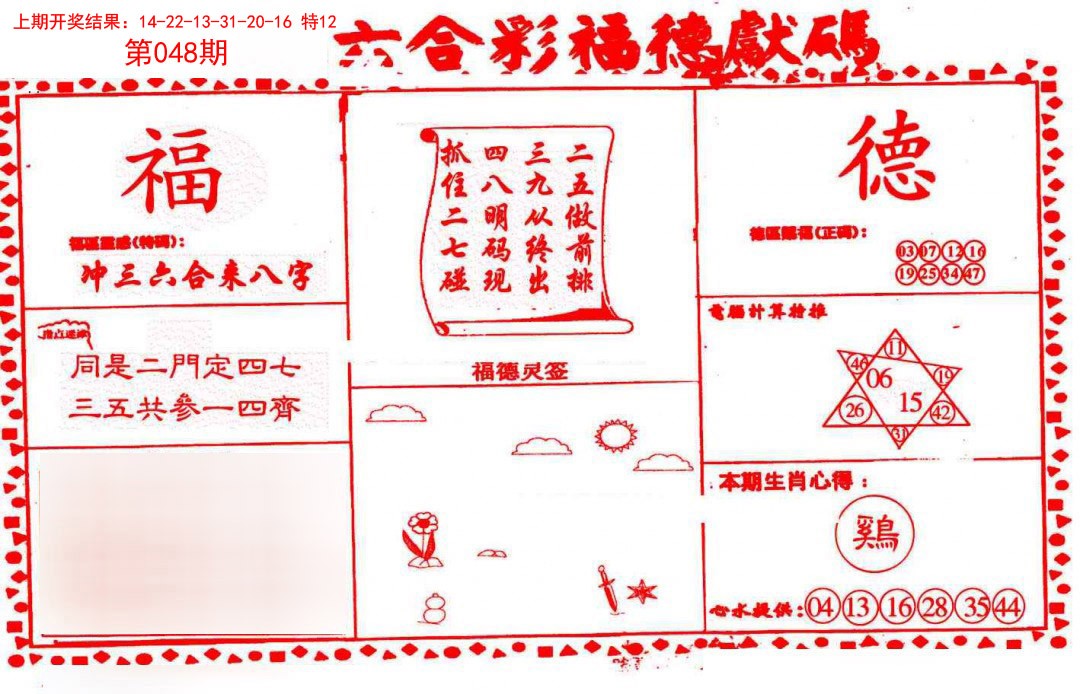 上期开奖结果：14-22-13-31-20-16 特12
第048期
六合彩福德獻碼
福
福區靈感(特碼)：
冲三六合来八字
指点迷途
同是二門定四七
三五共參一四齊
二五做前排
三九从终出
四八明码现
抓住二七碰
福德灵签
德
德區賜福(正碼)：
03 07 12 16
19 25 34 47
電腦計算粉推
11
46 19
06
15
26 42
31
本期生肖心得：
鷄
心水提供：04 13 16 28 35 44